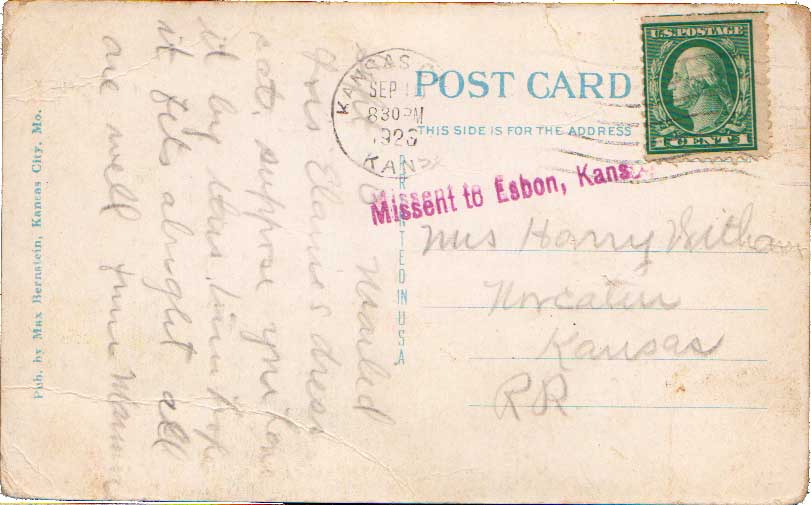 U.S. POSTAGE
1 CENT 1
KANSAS
SEP 1
830PM
1923
KANS
POST CARD
THIS SIDE IS FOR THE ADDRESS
Missent to Esbon, Kans
PRINTED IN USA
Mrs Harry
Norcatur
Kansas
RR
Mailed
dress
sat. suppose you
it by hope
it fits alright all
are well from
Pub. by Max Bernstein, Kansas City, Mo.